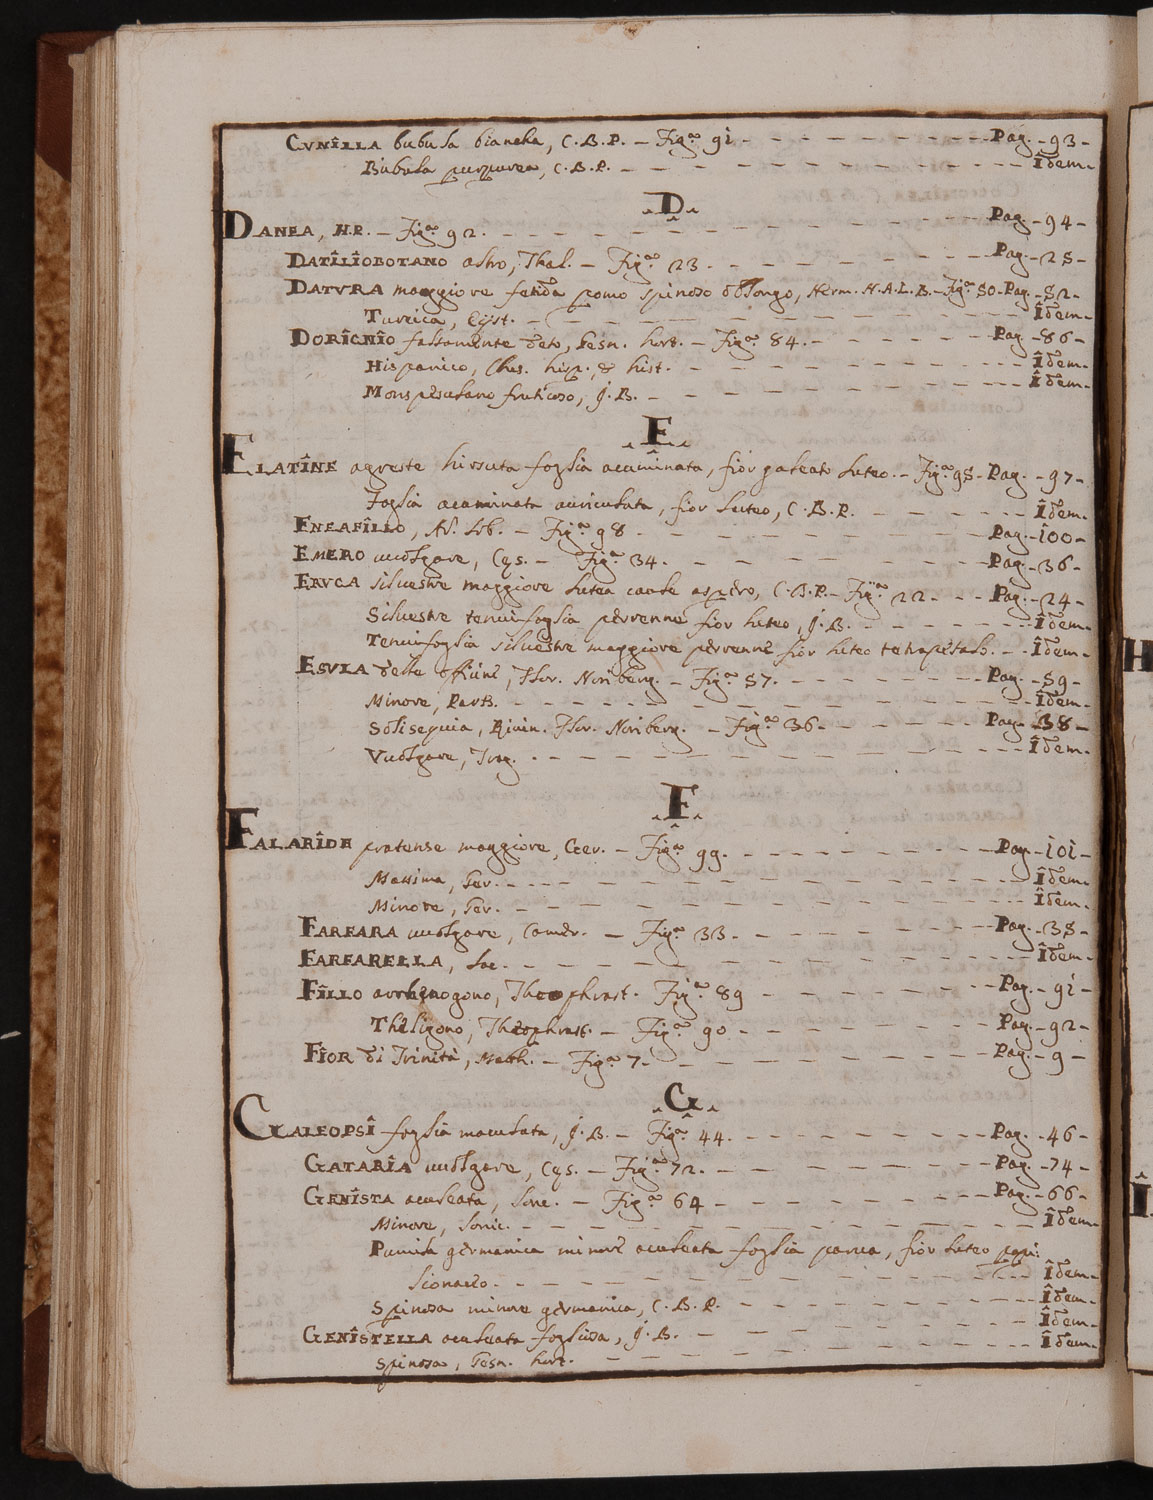 CVNÎLLA bubula biancha, C.B.P. – Fig.ª 91 - - - - - - - - - Pag. - 93 -
Bubula purpurea, C.B.P. - - - - - - - - - - - - Îdem -
D
DANEA, H.R. – Fig.ª 92. - - - - - - - - - - - - Pag. - 94 -
DATÎLÎOBOTANO altro, Thal. – Fig.ª 23. - - - - - - - - Pag. - 25 -
DATVRA maggiore fetida pomo spinoso oblongo, Herm. H.A.L.B. – Fig.ª 50 - Pag. - 52 -
Turcica, Eyst. - - - - - - - - - - - - - Îdem -
DORÎCNÎO falsamente deto, Gesn. hort. – Fig.ª 84. - - - - - - Pag. - 86 -
Hispanico, Clus. hisp., & hist. - - - - - - - - - - Îdem -
Monspesulano fruticoso, J.B. - - - - - - - - - - Îdem -
E
ELATÎNE agreste hirsuta foglia acuminata, fior galeato luteo. – Fig.ª 95 - Pag. - 97 -
Foglia acuminata auriculata, fior luteo, C.B.P. - - - - - - Îdem -
ENEAFÎLLO, Ad. Lob. – Fig.ª 98 - - - - - - - - - Pag. - 100 -
EMERO uuolgare, Cęs. – Fig.ª 34. - - - - - - - - Pag. - 36 -
ERVCA siluestre maggiore lutea caule aspero, C.B.P. – Fig.ª 22 - - - Pag. - 24 -
Siluestre tenuifoglia perrenne fior luteo, J.B. - - - - - - - Îdem -
Tenuifoglia siluestre maggiore perrenne fior luteo tetrapetalo. - - Îdem -
ESVLA delle officine, Flor. Noriberg. – Fig.ª 57. - - - - - - - Pag. - 59 -
Minore, Park. - - - - - - - - - - - - - Îdem -
Solisequia, Riuin. Flor. Noriberg. – Fig.ª 36 - - - - - - Pag. - 38 -
Vuolgare, Trag. - - - - - - - - - - - - - Îdem -
F
FALARÎDE pratense maggiore, Ger. – Fig.ª 99. - - - - - - - - Pag. - 101 -
Massima, Ger. - - - - - - - - - - - - - - Îdem -
Minore, Ger. - - - - - - - - - - - - - - Îdem -
FARFARA uuolgare, Camer. – Fig.ª 33 - - - - - - - - Pag. - 35 -
FARFARELLA, Loe. - - - - - - - - - - - - - Îdem -
FÎLLO arrhenogono, Theophrast. Fig.ª 89 - - - - - - - Pag. - 91 -
Theligono, Theophrast. – Fig.ª 90 - - - - - - - - Pag. - 92 -
FÎOR di Trinità, Math. – Fig.ª 7 - - - - - - - - - - Pag. - 9 -
G
GALEOPSÎ foglia maculata, J.B. – Fig.ª 44. - - - - - - - - Pag. - 46 -
GATARÎA uuolgare, Cęs. – Fig.ª 72. - - - - - - - - Pag. - 74 -
GENÎSTA aculeata, Lone. – Fig.ª 64 - - - - - - - - Pag. - 66 -
Minore, Lonic. - - - - - - - - - - - - - Îdem -
Pumila germanica minore aculeata foglia parua, fior luteo papi:
lionaceo. - - - - - - - - - - - - - - Îdem -
Spinosa minore germanica, C.B.P. - - - - - - - - - Îdem -
GENÎSTELLA aculeata fogliosa, J.B. - - - - - - - - - - Îdem -
Spinosa, Gesn. hort. - - - - - - - - - - - Îdem -
H
Î